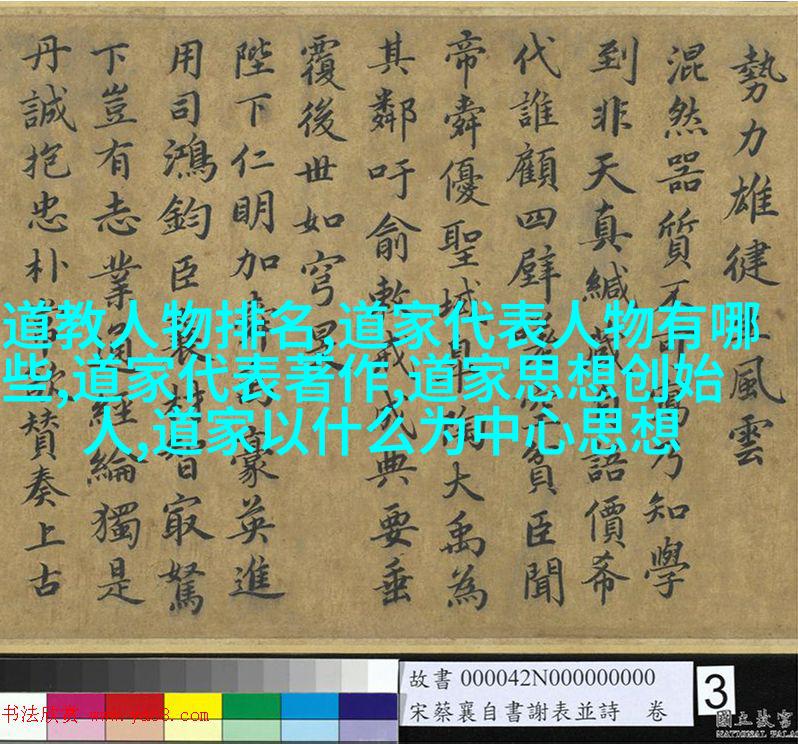 勢力雄徤風雲
混然器質乃知學
到非天真緘藏語價希
代誰顧四壁貧臣聞
帝舜優聖域皐陶大禹為
其鄰吁俞敕戒成典要垂
覆後世如穹旻
陛下仁明加豪英進
用司鴻鈞臣襄材智㝡駑
下豈有志業通經綸獨是
丹誠抱忠朴常欲贊奏上古
道教人物排名,道家代表人物有哪
些,道家代表著作,道家思想创始
人,道家以什么为中心思想
故書 000042N000000000
宋蔡襄自書謝表並詩 卷
3
書法欣赏 www.yac8.com
國立故宮
NATIONAL PALA